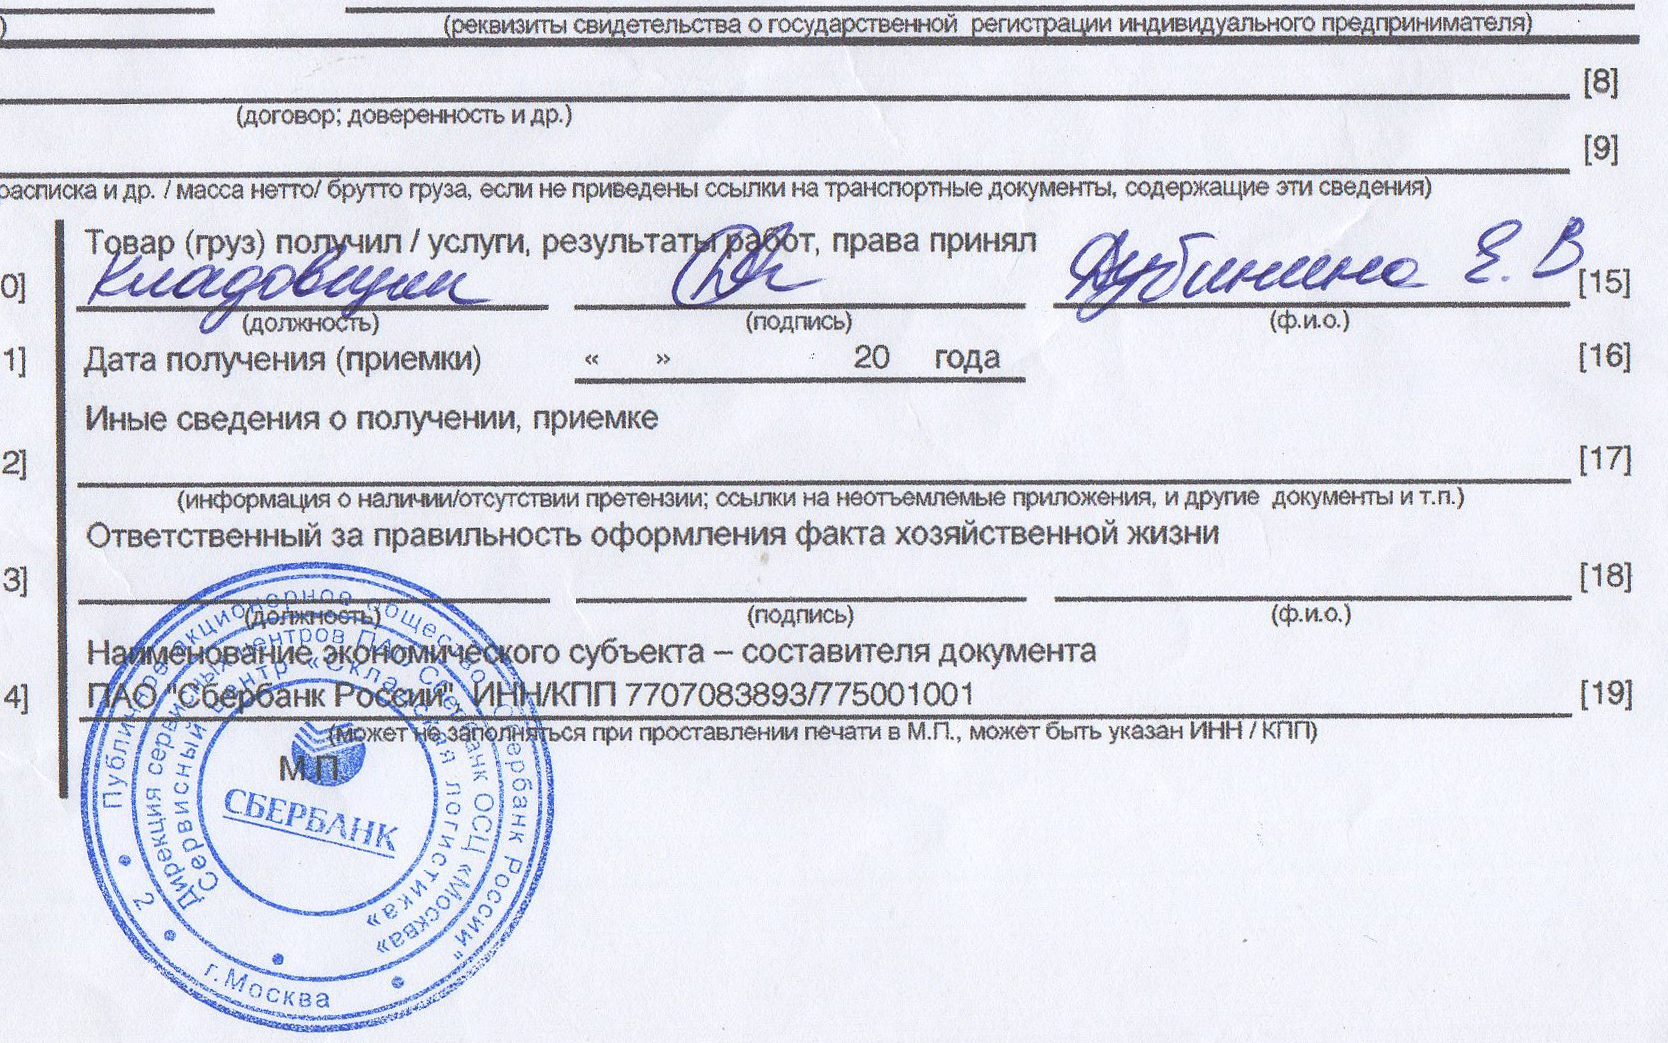 )
(реквизиты свидетельства о государственной регистрации индивидуального предпринимателя)
[8]
(договор; доверенность и др.)
[9]
расписка и др. / масса нетто/ брутто груза, если не приведены ссылки на транспортные документы, содержащие эти сведения)
Товар (груз) получил / услуги, результаты работ, права принял
0] Кладовщик Дубинина Е. В [15]
(должность) (подпись) (ф.и.о.)
1] Дата получения (приемки) « » 20 года [16]
Иные сведения о получении, приемке
2] [17]
(информация о наличии/отсутствии претензии; ссылки на неотъемлемые приложения, и другие документы и т.п.)
Ответственный за правильность оформления факта хозяйственной жизни
3] [18]
(должность) (подпись) (ф.и.о.)
Наименование экономического субъекта – составителя документа
4] ПАО "Сбербанк России", ИНН/КПП 7707083893/775001001 [19]
(может не заполняться при проставлении печати в М.П., может быть указан ИНН / КПП)
М.П.
Публичное акционерное общество "Сбербанк России"
Дирекция сервисных центров ПАО Сбербанк ОСЦ «Москва»
Сервисный центр «Складская логистика»
СБЕРБАНК
2
г.Москва